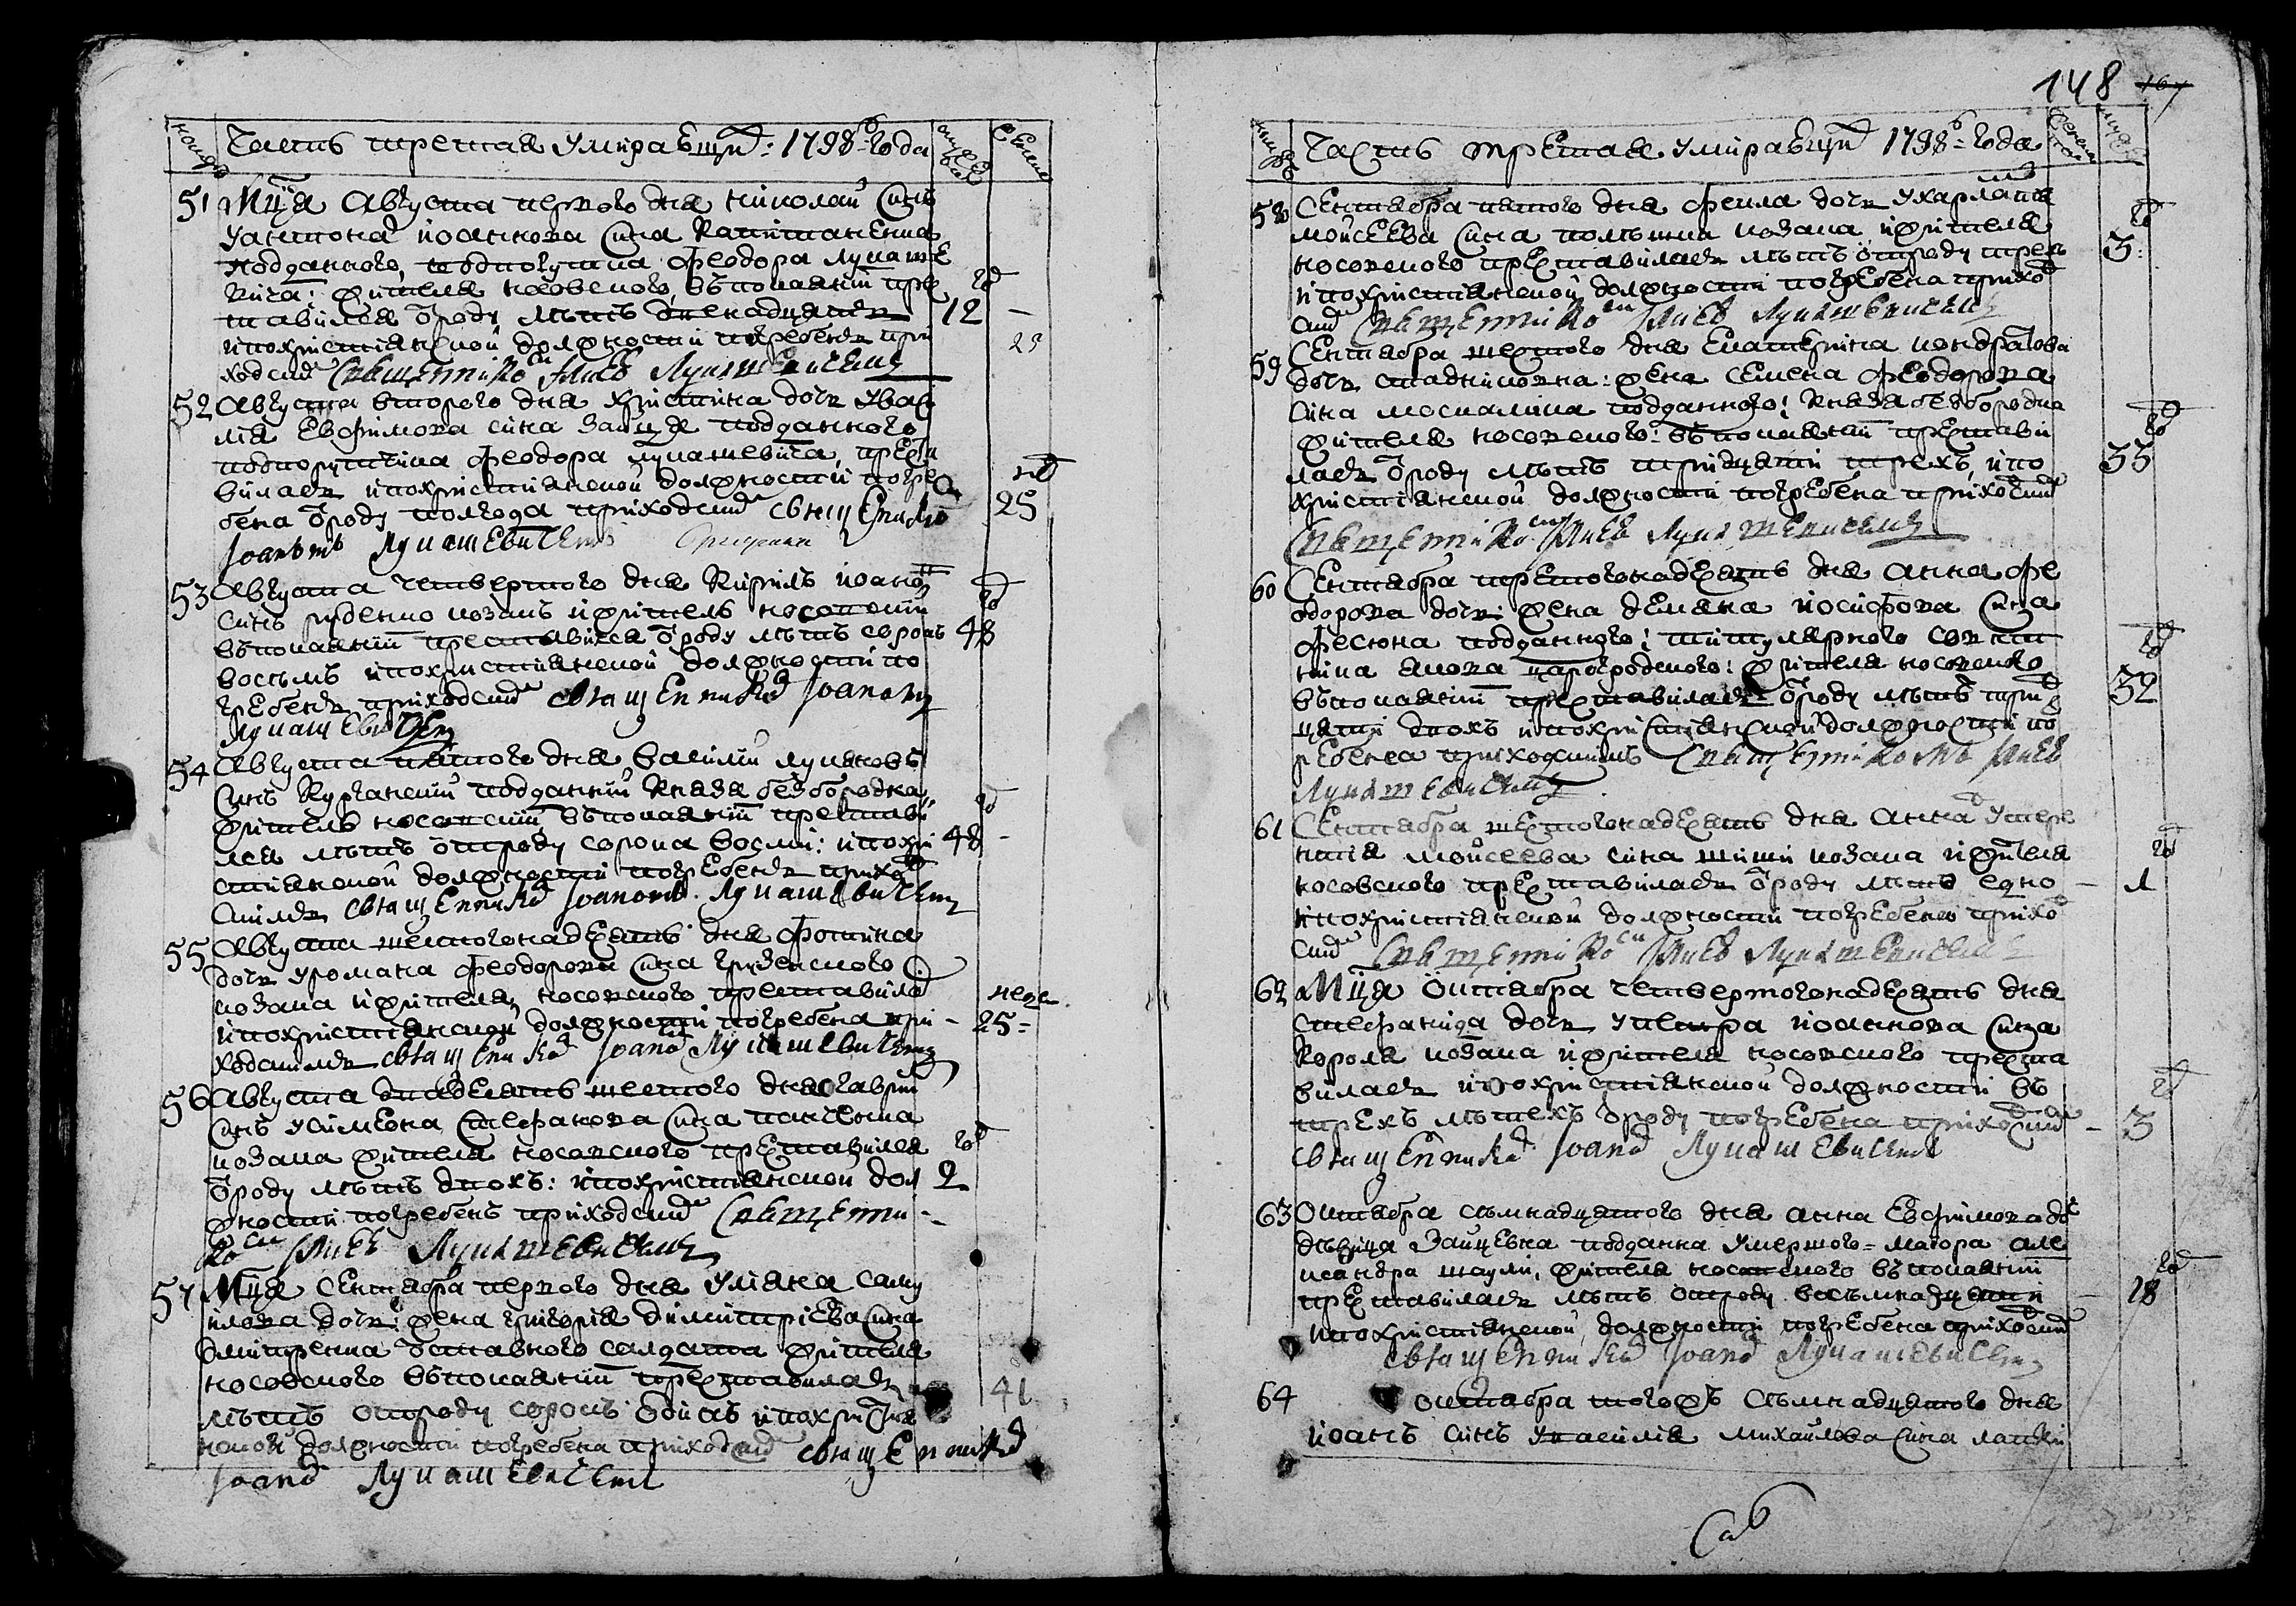 Часть третая Умѣравщи: 1798 года
51 Мца Августа первого дня николай синъ
у антона иоаннова сина капитаненка
подданного, подпоручика феодора лукаше
вича: жителя носовского, въ покаянии пре
ставился ѿ роду лѣтъ двенадцять 12
и по християнской должности погребенъ при
ходским Священником Іоаном Лукашевичемъ
52 Августа второго дня християна дочь у васи
лия Евфимова сина зайця подданного
подпоручика феодора лукашевича, преста
вилась и по християнской должности погре
бена ѿ роду полгода приходским священником 25
Іоанномъ Лукашевичемъ
53 Августа четвертого дня Кирилъ иоано
синъ руденко козакъ и житель носовский
въ покаянии преставився ѿ роду лѣтъ сорокъ 48
восемъ и по християнской должности по
гребенъ приходским священником Іоаномъ
Лукашевичемъ
54 Августа пятого дня василий лукяновъ
синъ курганский подданний князя безбородка
житель носовский въ покаянии престави
лся лѣтъ отроду сорока восми: и по хри 48
стиянской должности погребенъ прихо
скимъ священником Іоаномъ Лукашевичемъ
55 Августа шестогонадесять дня фотина
дочь у романа феодорова сина
козака и жителя носовского преставила неде
и по християнской должности погребена при 25
ходскимъ священником Іоаном Лукашевичемъ
56 Августа двадесять шестого дня гаврии
синъ у симеона стефанова сина панченка
козака жителя носовского преставился год
ѿ роду лѣтъ двохъ: и по християнской дол 2
жности погребенъ приходским Священни
ком Іоаном Лукашевичемъ
57 Мца Сентября первого дня улияна саму
илова дочь: жена григория димитриева сина
дмитренка ѿставного салдата жителя
носовского въ покаянии преставилась
лѣтъ отроду сорокъ одинъ и по християн 41
ской должности погребена приходским священником
Іоаном Лукашевичемъ
148 167
Часть третая Умѣравщи 1798 года
58 Сентября пятого дня фекла дочь у харлампия
мойсеева сина козака и жителя
носовского преставилась лѣтъ отроду трехъ 3
и по християнской должности погребена прихо
ским Священником Іоаном Лукашевичемъ
59 Сентября шестого дня Екатерина кондратова
дочь: жена семена феодорова
сина москалика подданного: князя безбородка
жителя носовского: въ покаянии престави
лась ѿ роду лѣтъ тридцяти трехъ, и по 33
християнской должности погребена приходским
Священником Іоаном Лукашевичемъ
60 Сентября третогонадесять дня анна фе
одорова дочь: жена демяна иосифова сина
фесюна подданного: титулярного совет
ника якова царогродского: жителя носовского
въ покаянии преставилась ѿ роду лѣтъ трид 32
цяти двохъ и по християнской должности по
гребенна приходскимъ Священникомъ Іоаном
Лукашевичемъ
61 Сентября шестогонадесять дня анна
мойсеева сина козака и жителя год
носовского преставилась ѿ роду лѣтъ едно 1
и по християнской должности погребена прихо
ским Священником Іоаном Лукашевичемъ
62 Мца Октября четвертогонадесять дня
стефанида дочь у иоаннова сина
короля козака и жителя носовского преста
вилась и по християнской должности въ
трехъ лѣтехъ ѿ роду погребена приходским 3
священником Іоаном Лукашевичемъ
63 Октября семнадцятого дня анна Евфимова до
дѣвица Зайцевна подданна умершого маиора але
ксандра жителя носовского въ покаянии
преставилась лѣтъ отроду восьмнадцяти 18
и по християнской должности погребена приходским
священником Іоаном Лукашевичемъ
64 октября тогожъ семнадцятого дня
иоанъ синъ у василия михайлова сина